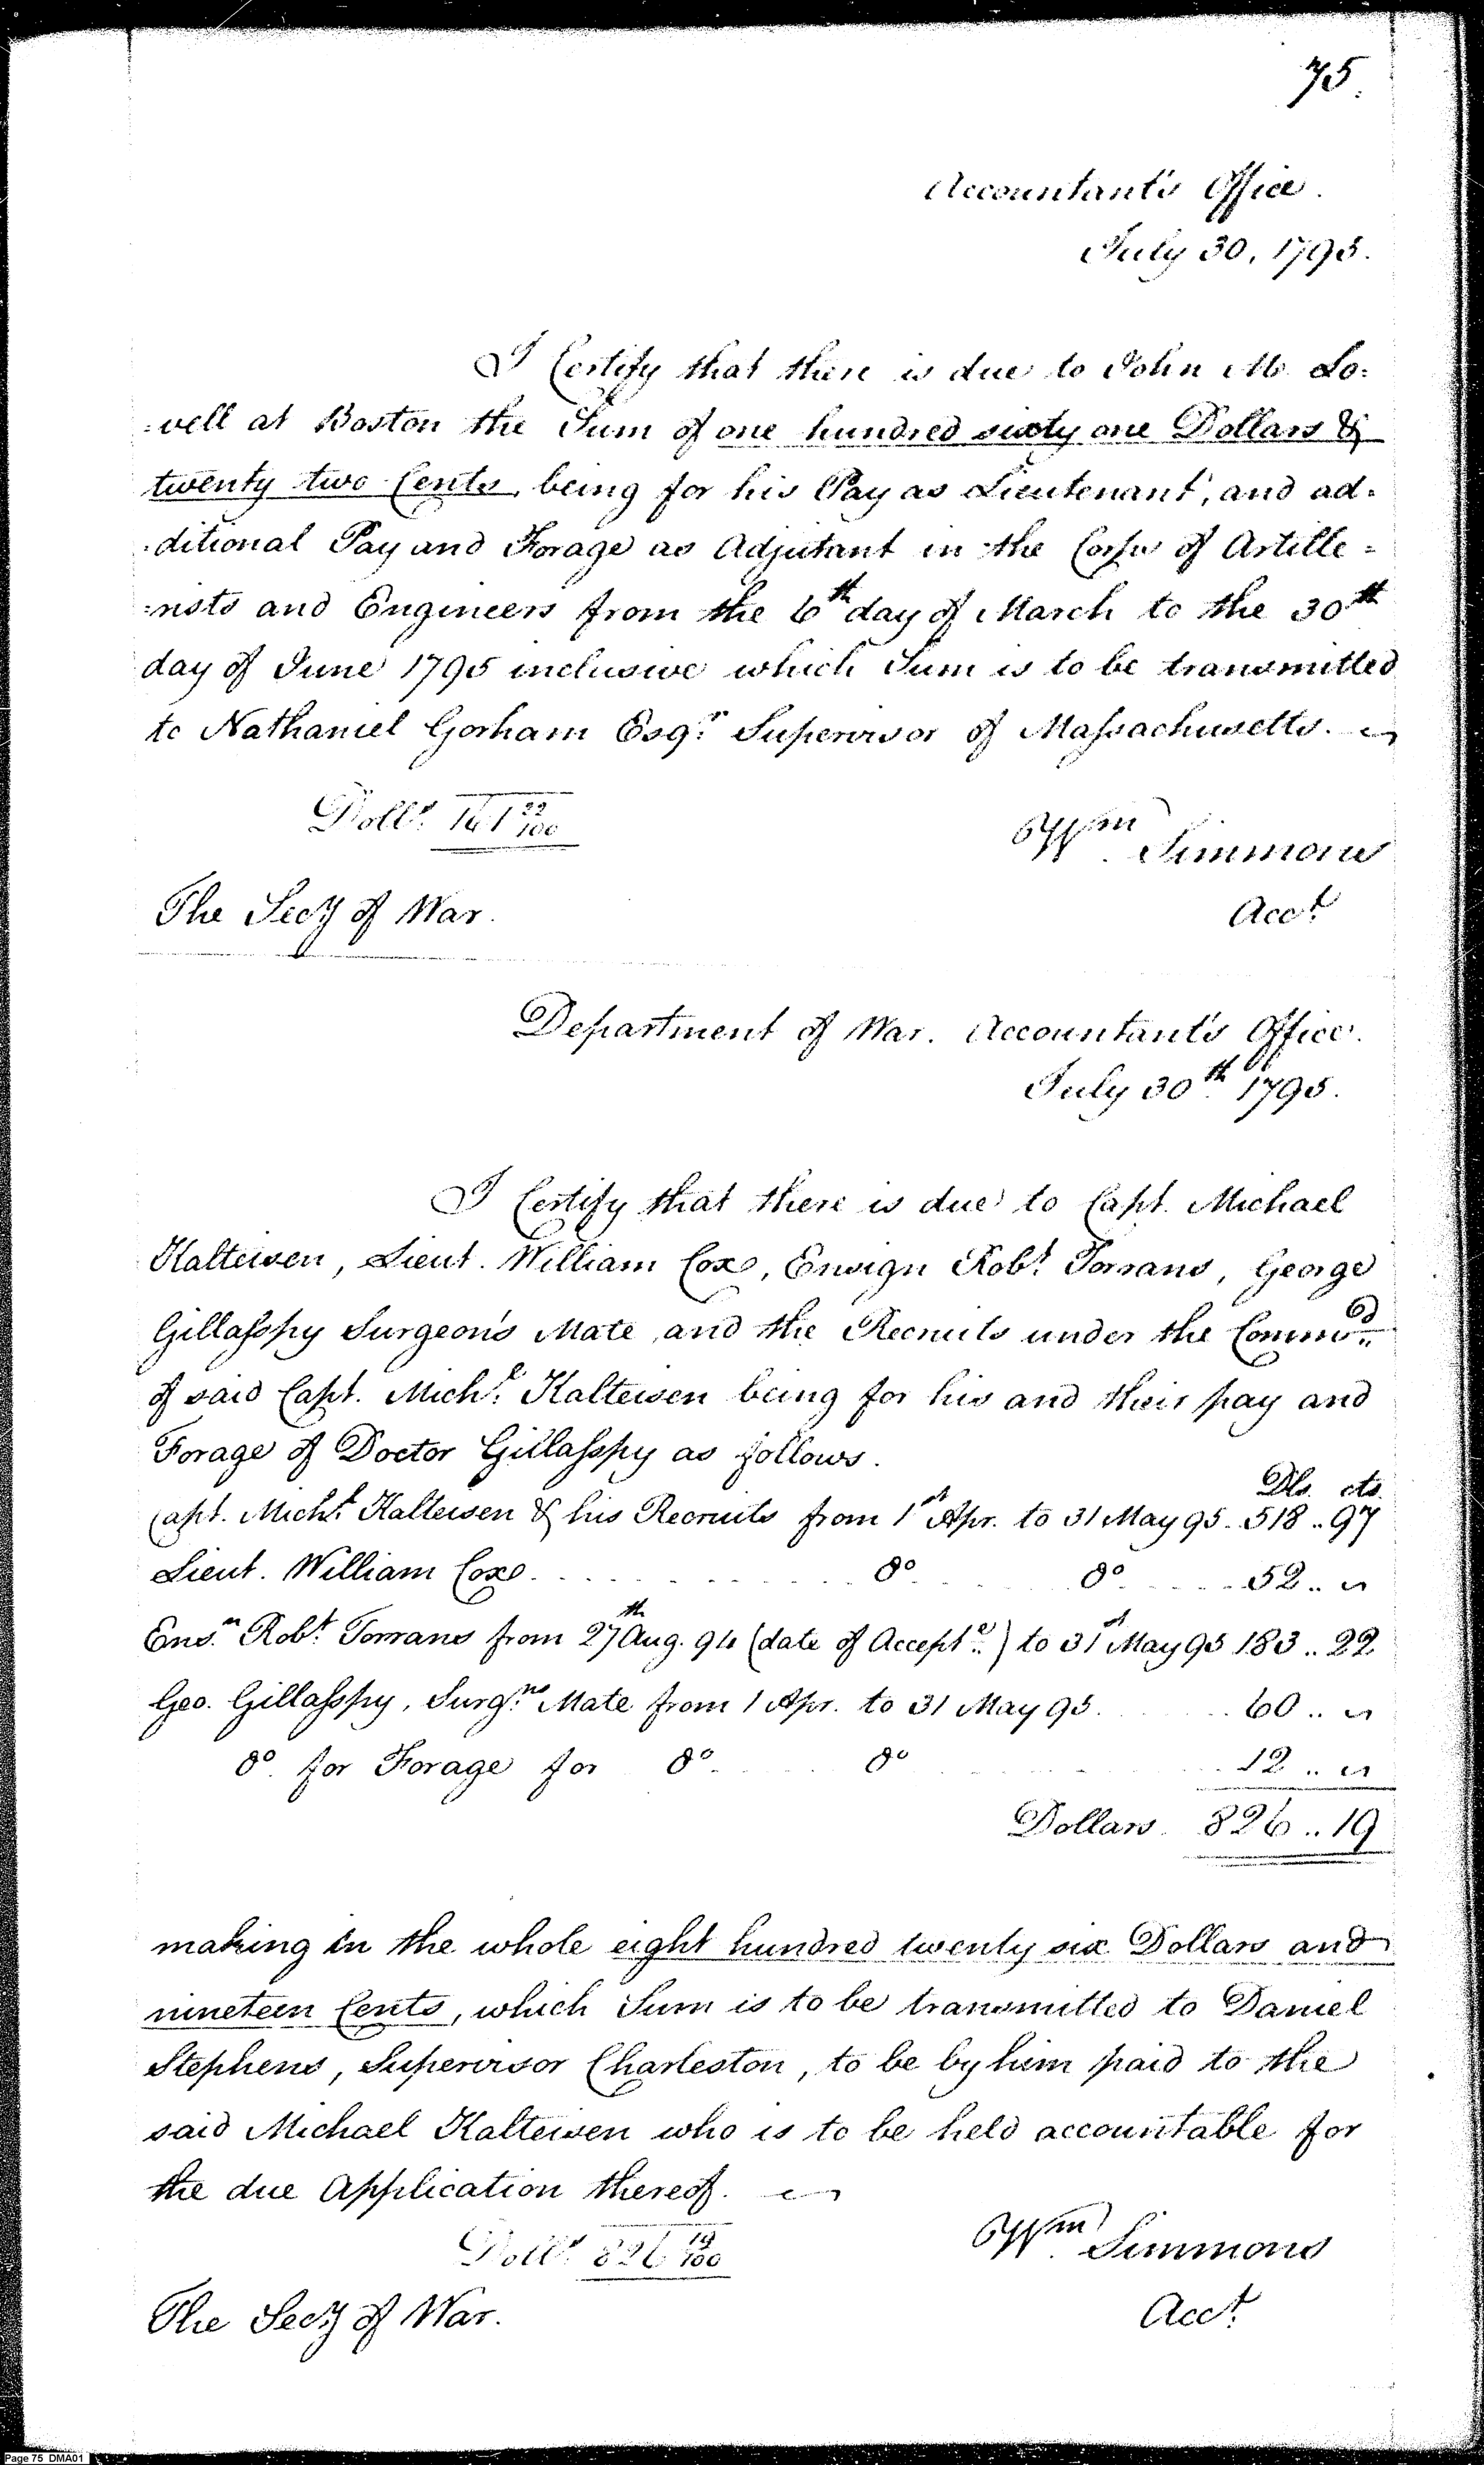 75.
Accountant's Office.
July 30, 1795.
I Certify that there is due to John M. Lo=
=vell at Boston the Sum of one hundred sixty one Dollars &
twenty two Cents, being for his Pay as Lieutenant, and ad=
=ditional Pay and Forage as Adjutant in the Corps of Artille=
=rists and Engineers from the 6th day of March to the 30th
day of June 1795 inclusive which Sum is to be transmitted
to Nathaniel Gorham Esqr. Supervisor of Massachusetts.
Dolls. 161 22/100
Wm. Simmons
The Secy of War.
Acct.
Department of War. Accountant's Office.
July 30th. 1795.
I Certify that there is due to Capt. Michael
Kalteisen, Lieut. William Cox, Ensign Robt. Torrans, George
Gillasspy Surgeon's Mate and the Recruits under the Commd.
of said Capt. Michl. Kalteisen being for his and their pay and
Forage of Doctor Gillasspy as follows.
Dls. cts.
Capt. Michl. Kalteisen & his Recruits from 1st Apr. to 31 May 95. 518 .. 97
Lieut. William Cox. do. do. 52 .. "
Ensn. Robt. Torrans from 27th Aug. 94 (date of Accepte.) to 31st May 95 183 .. 22
Geo. Gillasspy, Surgns. Mate from 1 Apr. to 31 May 95. 60 .. "
do. for Forage for do. do 12 .. "
Dollars 826 .. 19
making in the whole eight hundred twenty six Dollars and
nineteen Cents, which Sum is to be transmitted to Daniel
Stephens, Supervisor Charleston, to be by him paid to the
said Michael Kalteisen who is to be held accountable for
the due Application thereof.
Dolls. 826 19/100
Wm. Simmons
The Secy of War.
Acct.
Page 75 DMA01